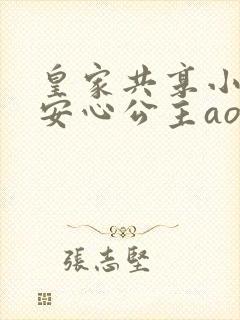 皇家共享小
安心公主ao
張志堅